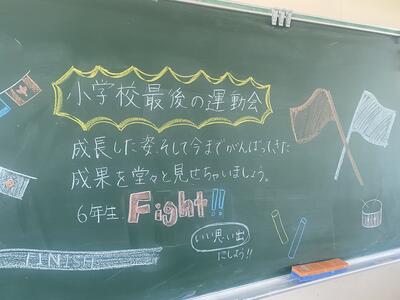 小学校最後の運動会
成長した姿、そして今までがんばってきた
成果を堂々と見せちゃいましょう。
6年生 Fight!!
いい思い出
にしよう!!
FINISH